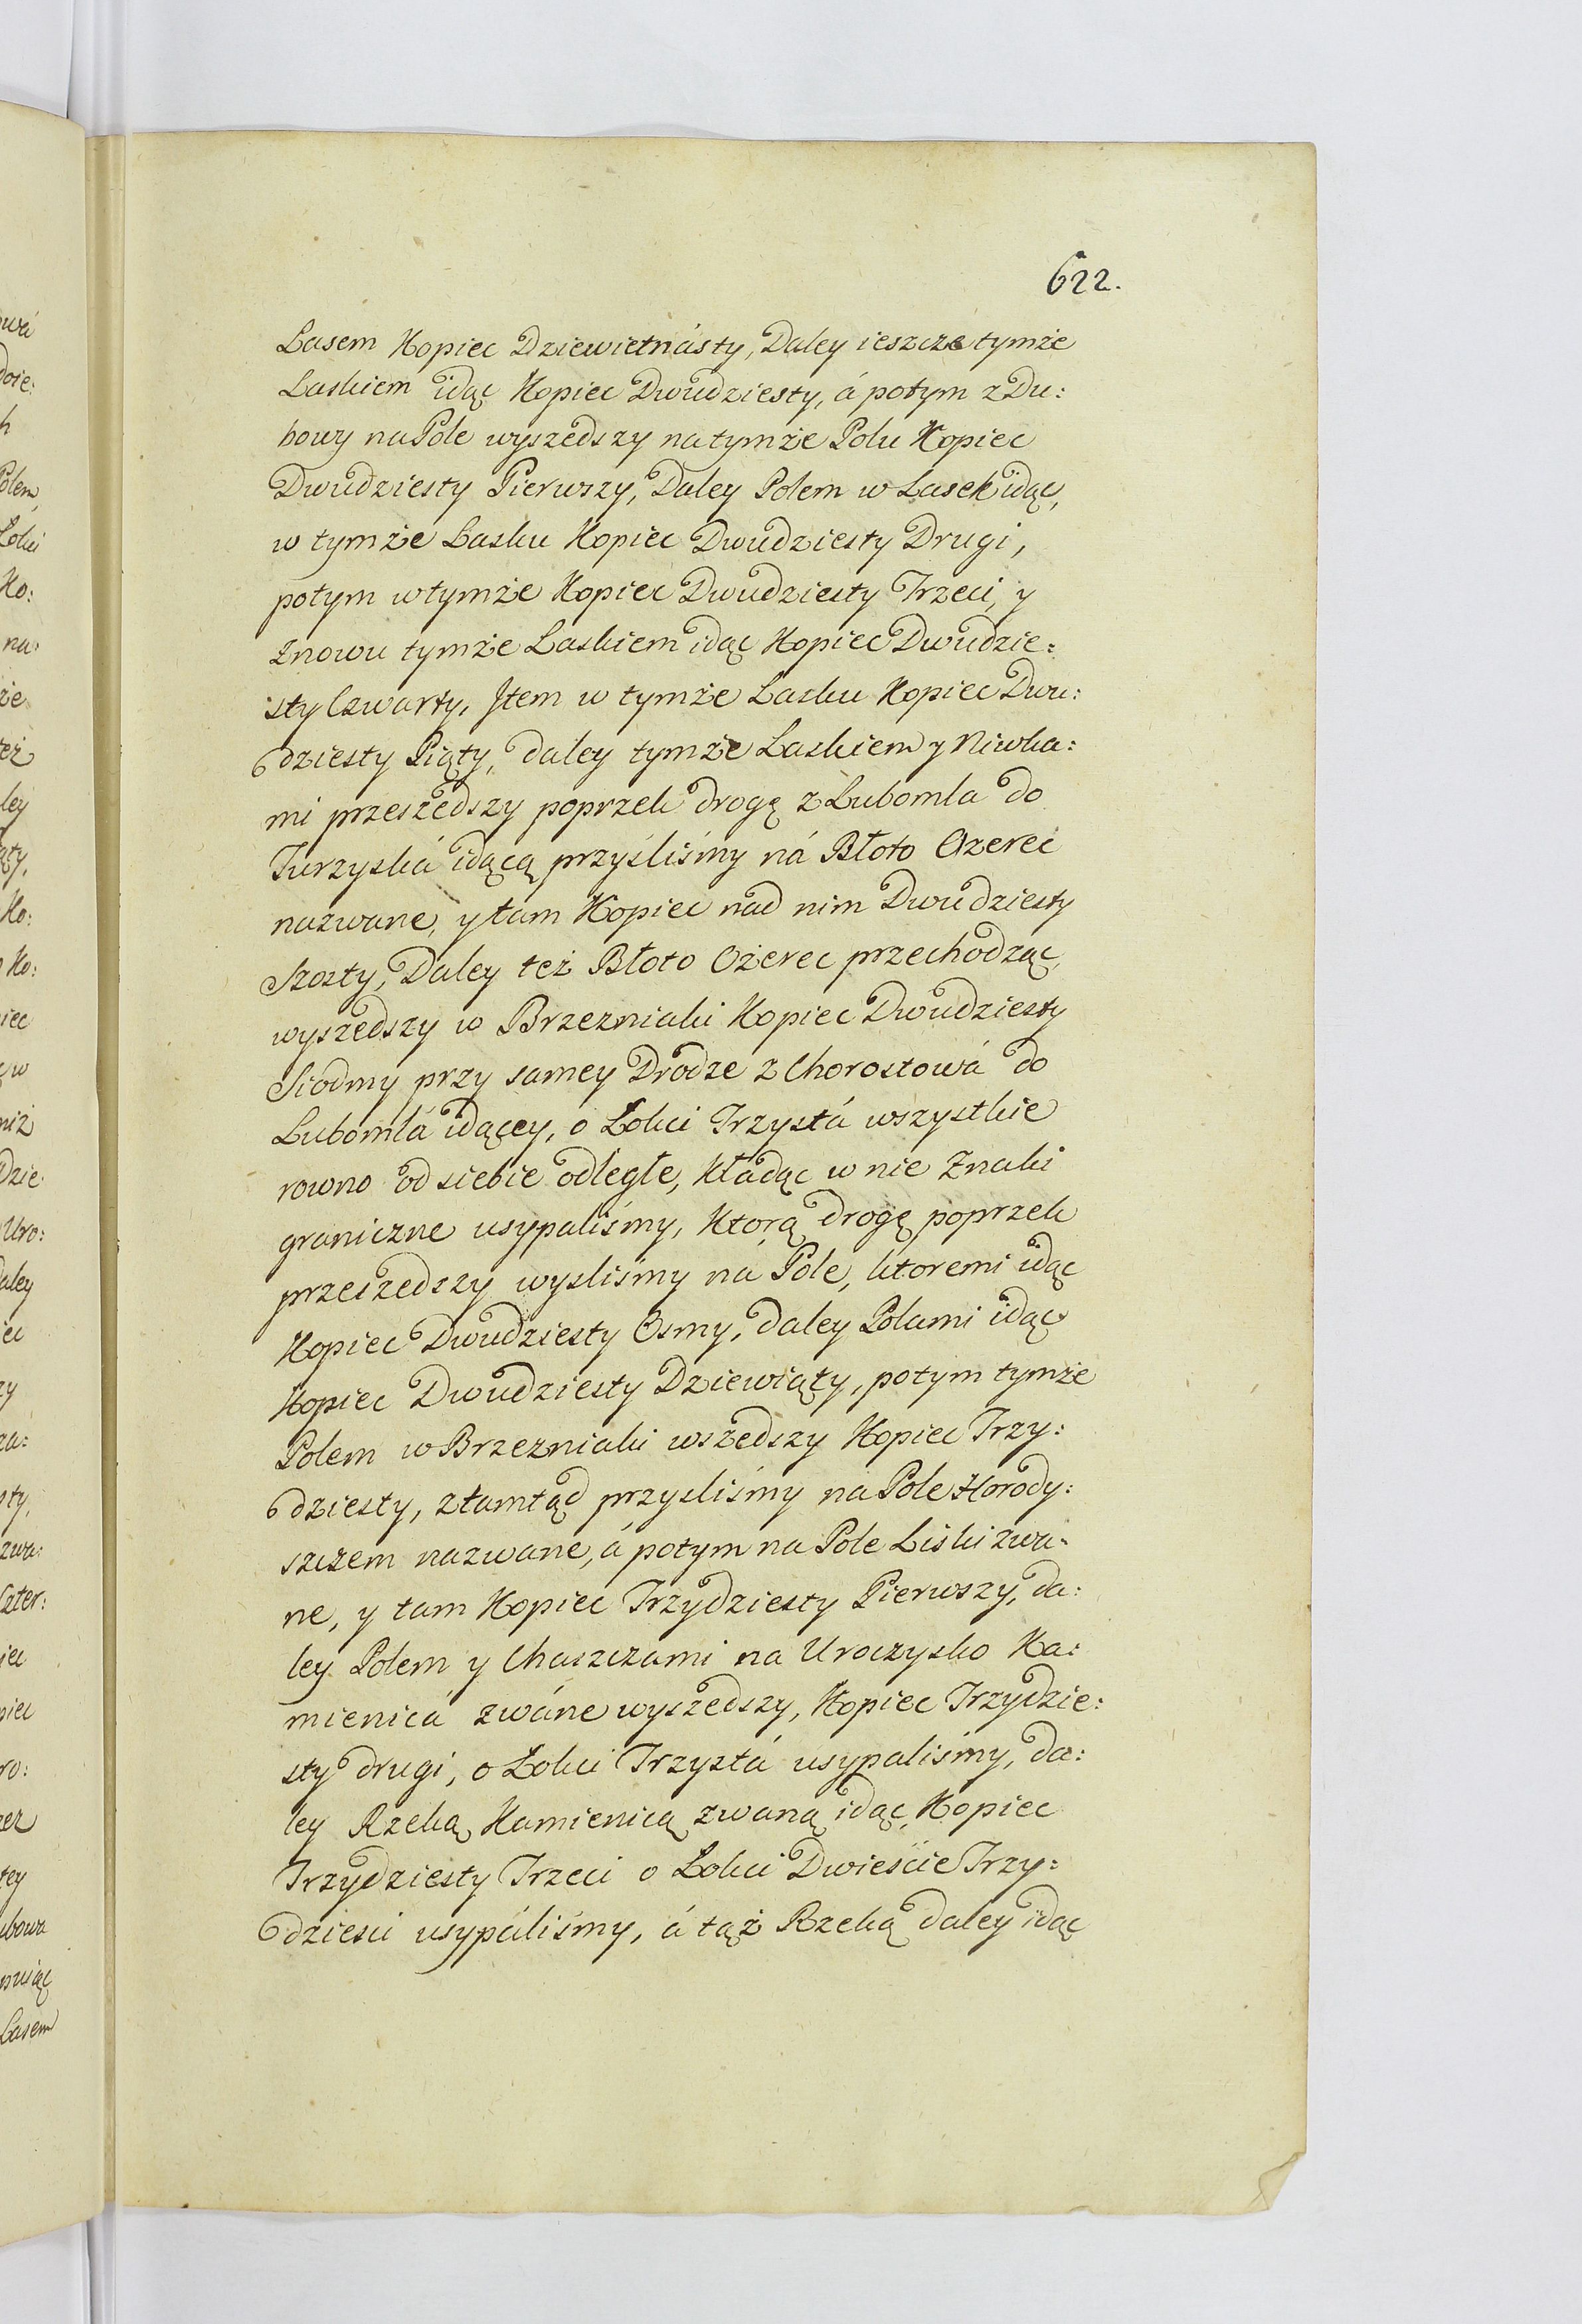 622.
Lasem Kopiec Dziewietnásty, Daley ieszcze tymże
Laskiem idąc Kopiec Dwudziesty, á potym z Du:
bowy na Pole wyszedszy na tymże Polu Kopiec
Dwudziesty Pierwszy, Daley Polem w Lasek idąc,
w tymże Lasku Kopiec Dwudziesty Drugi,
potym w tymże Kopiec Dwudziesty Trzeci, y
znowu tymże Laskiem idąc Kopiec Dwudzie:
sty Czwarty, Item w tymże Lasku Kopiec Dwu:
dziesty Piąty, daley tymże Laskiem y Niwka:
mi przeszedszy poprzek drogę z Lubomla do
Turzyská idącą przyśliśmy ná Błoto Ozerec
nazwane, y tam Kopiec nad nim Dwudziesty
Szosty, Daley też Błoto Ozerec przechodząc,
wyszedszy w Brzezniaki Kopiec Dwudziesty
Siodmy przy samey Drodze z Chorostowá do
Lubomlá idącey, o Łokci Trzystá wszystkie
rowno od siebie odległe, Kładąc w nie Znaki
graniczne usypaliśmy, Ktorą drogę poprzek
przeszedszy wysliśmy ná Pole, ktoremi idąc
Kopiec Dwudziesty Osmy, daley Polami idąc
Kopiec Dwudziesty Dziewiąty, potym tymże
Polem w Brzezniaki wszedszy Kopiec Trzy:
dziesty, ztamtąd przysliśmy na Pole Horody:
szczem nazwane, á potym na Pole Liski zwa:
ne, y tam Kopiec Trzydziesty Pierwszy, da:
ley Polem y Chaszczami na Uroczysko Ka:
mienicá zwáne wyszedszy, Kopiec Trzydzie:
sty drugi, o Łokci Trzystá usypaliśmy, da:
ley Rzeką Kamienicą zwaną idąc, Kopiec
Trzydziesty Trzeci o Łokci Dwieście Trzy:
dzieści usypáliśmy, á tąż Rzeką daley idąc